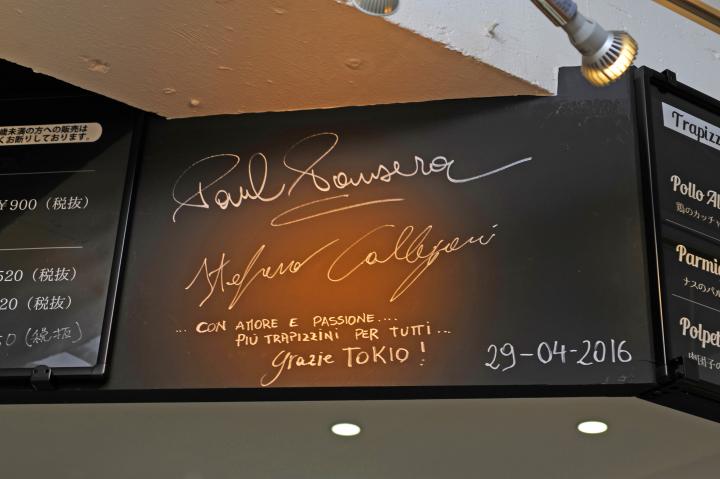 歳未満の方への販売は
くお断りしております。
¥900(税抜)
520(税抜)
20(税抜)
0(税抜)
Paul Pansera
Stefano Callegari
... CON AMORE E PASSIONE....
PIÚ TRAPIZZINI PER TUTTI...
grazie TOKIO!
29-04-2016
Trapizz
Pollo Al
鶏のカッチャ
Parmi
ナスのパル
Polpet